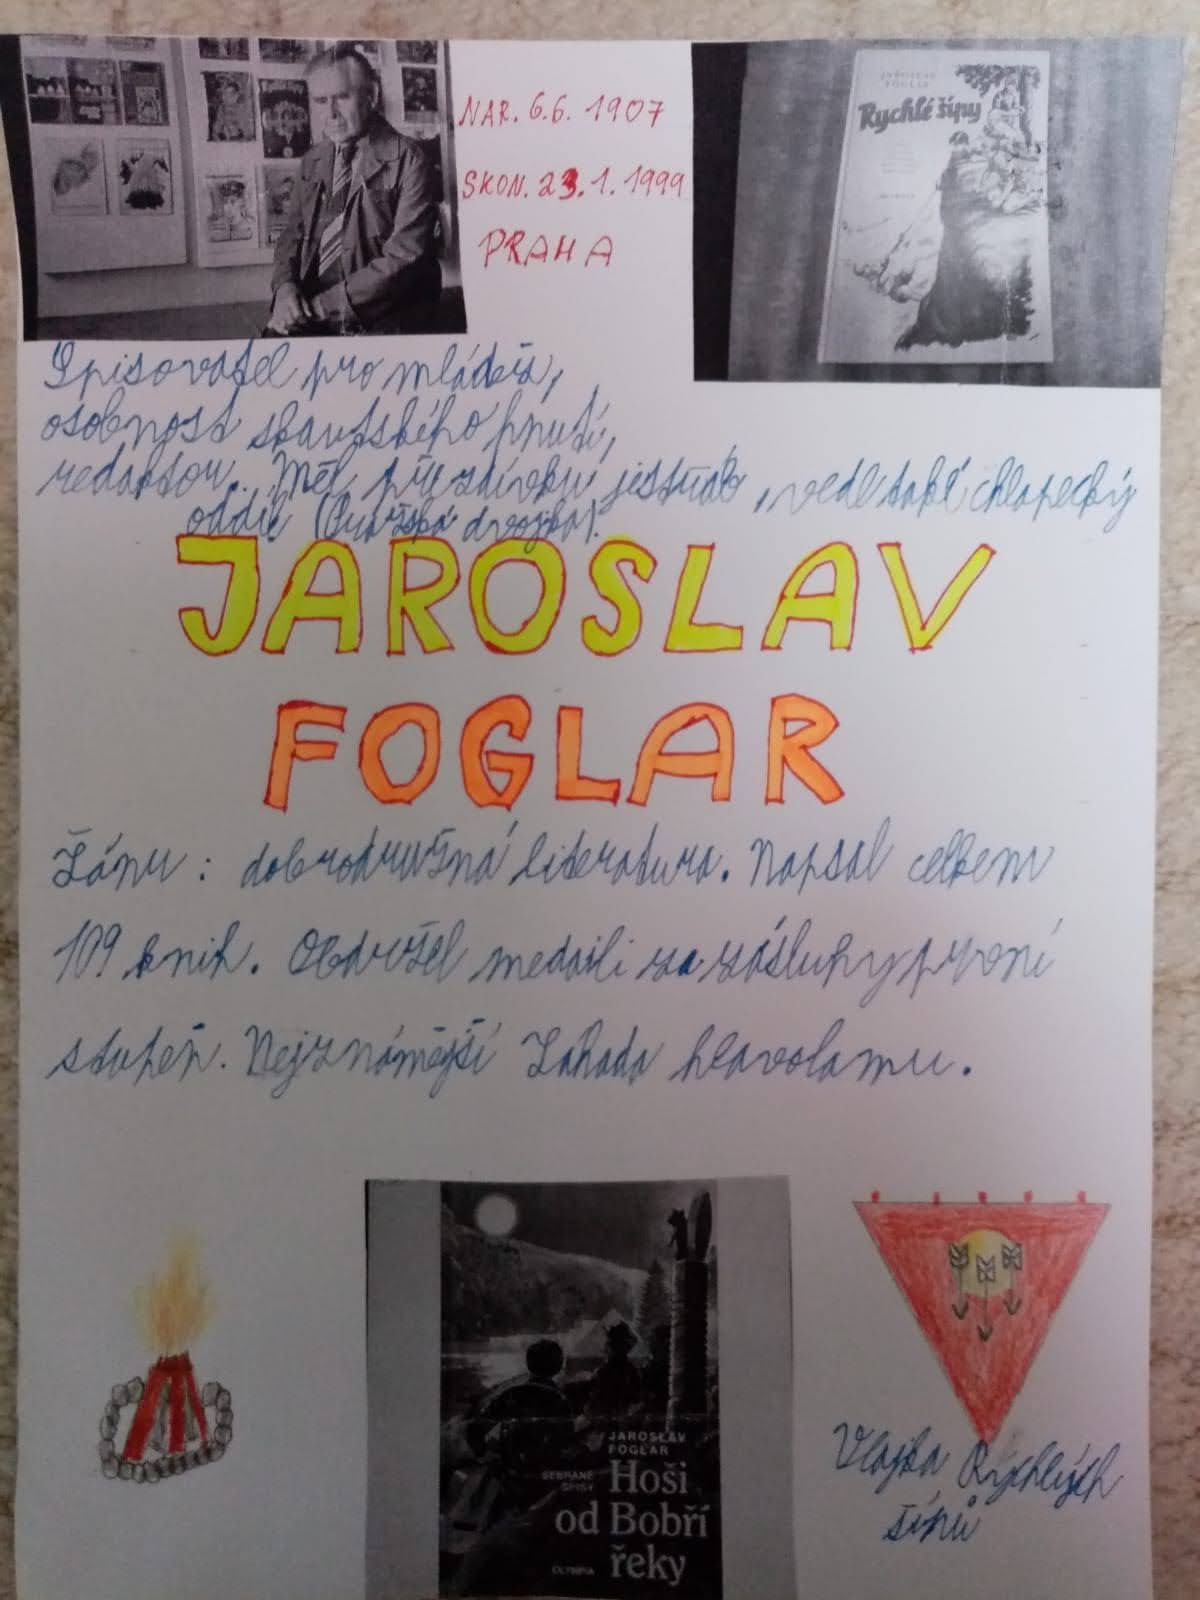 NAR. 6.6. 1907
SKON. 23.1.1999
PRAHA
JAROSLAV
FOGLAR
Rychlé šípy
Spisovatel pro mládež,
osobnost skautského hnutí,
redaktor. Měl přezdívku jestřáb, vedl také chlapecký
oddíl (Pražská dvojka).
JAROSLAV
FOGLAR
Žánr: dobrodružná literatura. Napsal celkem
109 knih. Obdržel medaili za zásluhy první
stupeň. Nejznámější Záhada hlavolamu.
JAROSLAV
FOGLAR
SEBRANÉ
SPISY
Hoši
od Bobří
řeky
OLYMPIA
Vlajka Rychlých
šípů